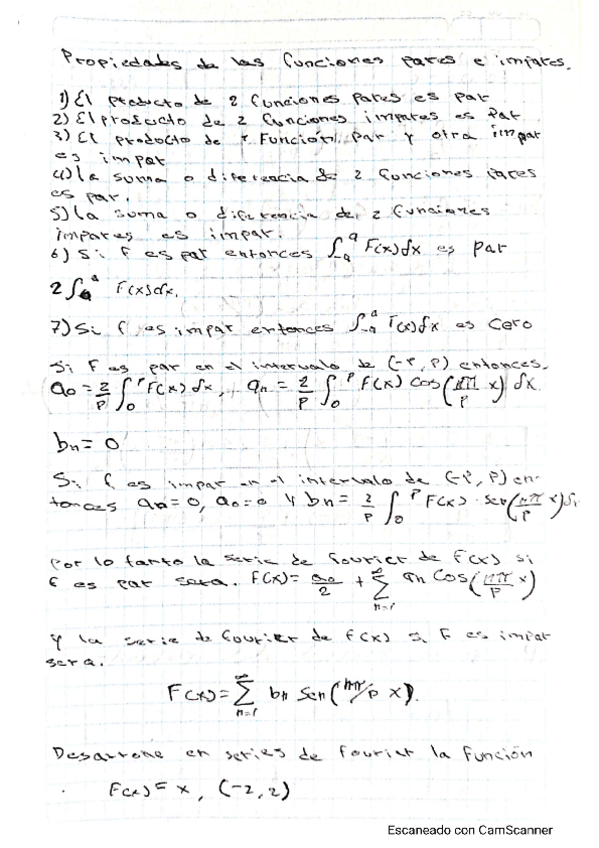 Propiedades de las funciones pares e impares.
1) El producto de 2 funciones pares es par
2) El producto de 2 funciones impares es Par
3) El producto de 1 Función Par y otra impar
es impar
4) la suma o diferencia de 2 funciones pares
es par.
5) la suma o diferencia de 2 funciones
impares es impar.
6) Si f es par entonces ∫₋ₐᵃ F(x)dx es par
2∫₀ᵃ F(x)dx.
7) Si f es impar entonces ∫₋ₐᵃ F(x)dx es Cero
Si F es par en el intervalo de (-P, P) entonces.
a₀ = 2/P ∫₀ᴾ F(x)dx, aₙ = 2/P ∫₀ᴾ F(x) cos(nπ/P x) dx
bₙ = 0
Si f es impar en el intervalo de (-P, P) en-
tonces aₙ=0, a₀=0 y bₙ = 2/P ∫₀ᴾ F(x) · sen(nπ/P x)
Por lo tanto la serie de fourier de F(x) si
f es par sera. F(x) = a₀/2 + ∑ₙ₌₁^∞ aₙ Cos(nπ/P x)
Y la serie de fourier de f(x) si F es impar
sera.
F(x) = ∑ₙ₌₁^∞ bₙ Sen(nπ/P x).
Desarrolle en series de fourier la función
F(x) = x, (-2, 2)
Escaneado con CamScanner